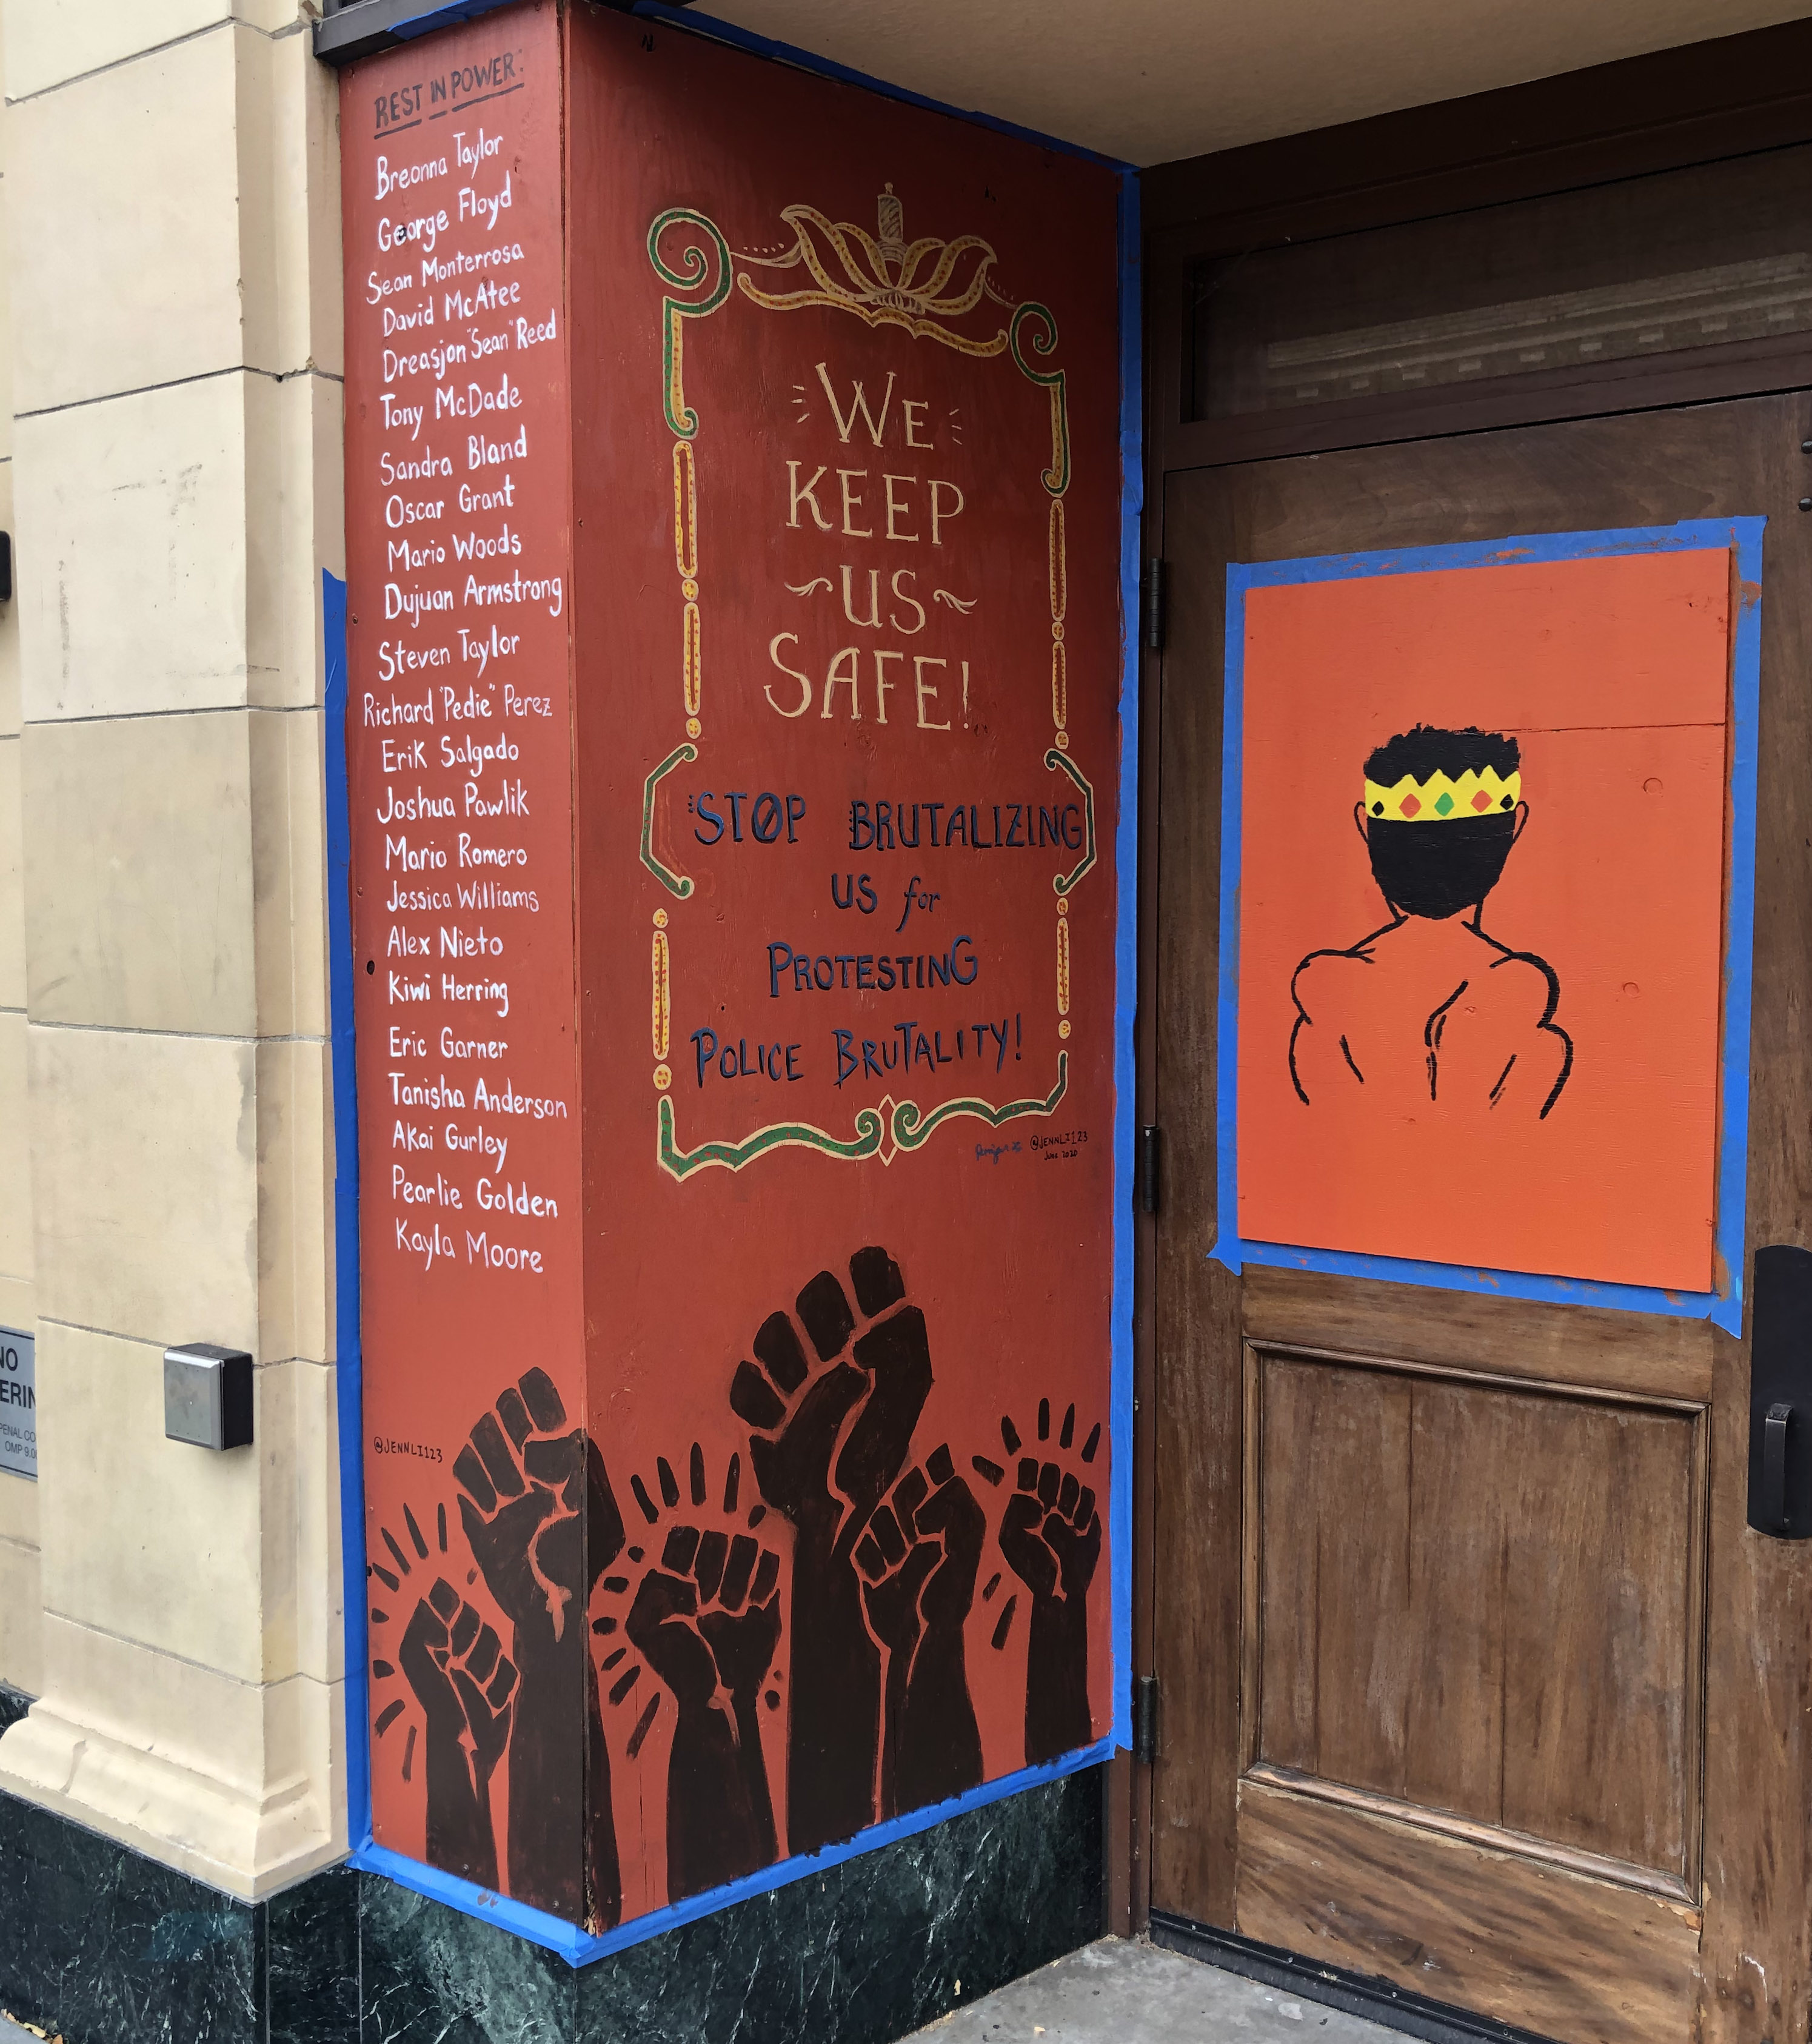 REST IN POWER:
Breonna Taylor
George Floyd
Sean Monterrosa
David McAtee
Dreasjon "Sean" Reed
Tony McDade
Sandra Bland
Oscar Grant
Mario Woods
Dujuan Armstrong
Steven Taylor
Richard "Pedie" Perez
Erik Salgado
Joshua Pawlik
Mario Romero
Jessica Williams
Alex Nieto
Kiwi Herring
Eric Garner
Tanisha Anderson
Akai Gurley
Pearlie Golden
Kayla Moore
@JENNLI123
WE
KEEP
US
SAFE!
STOP BRUTALIZING
US for
PROTESTING
POLICE BRUTALITY!
@JENNLI123
JUNE 2020
NO
PENAL CO
OMP 9.0